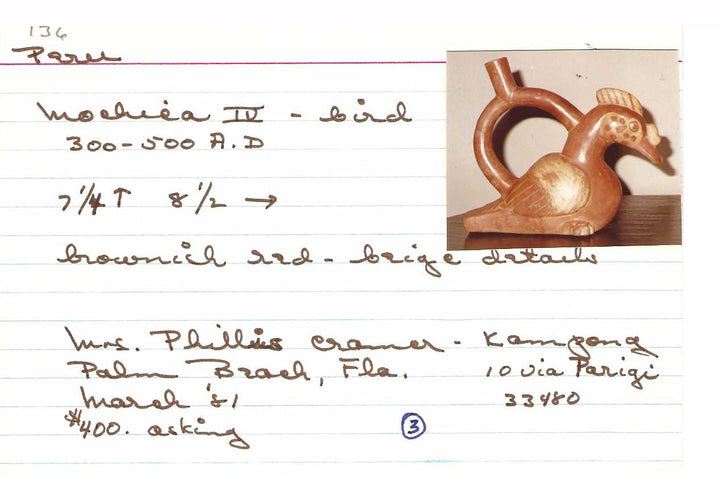 136
Peru
Mochica IV - bird
300-500 A.D
7 1/4 ↑ 8 1/2 →
brownich red - beige details
Mrs. Phillis Cramer - Kampong
Palm Beach, Fla. 10 Via Parigi
March '81 33480
$400. asking
3